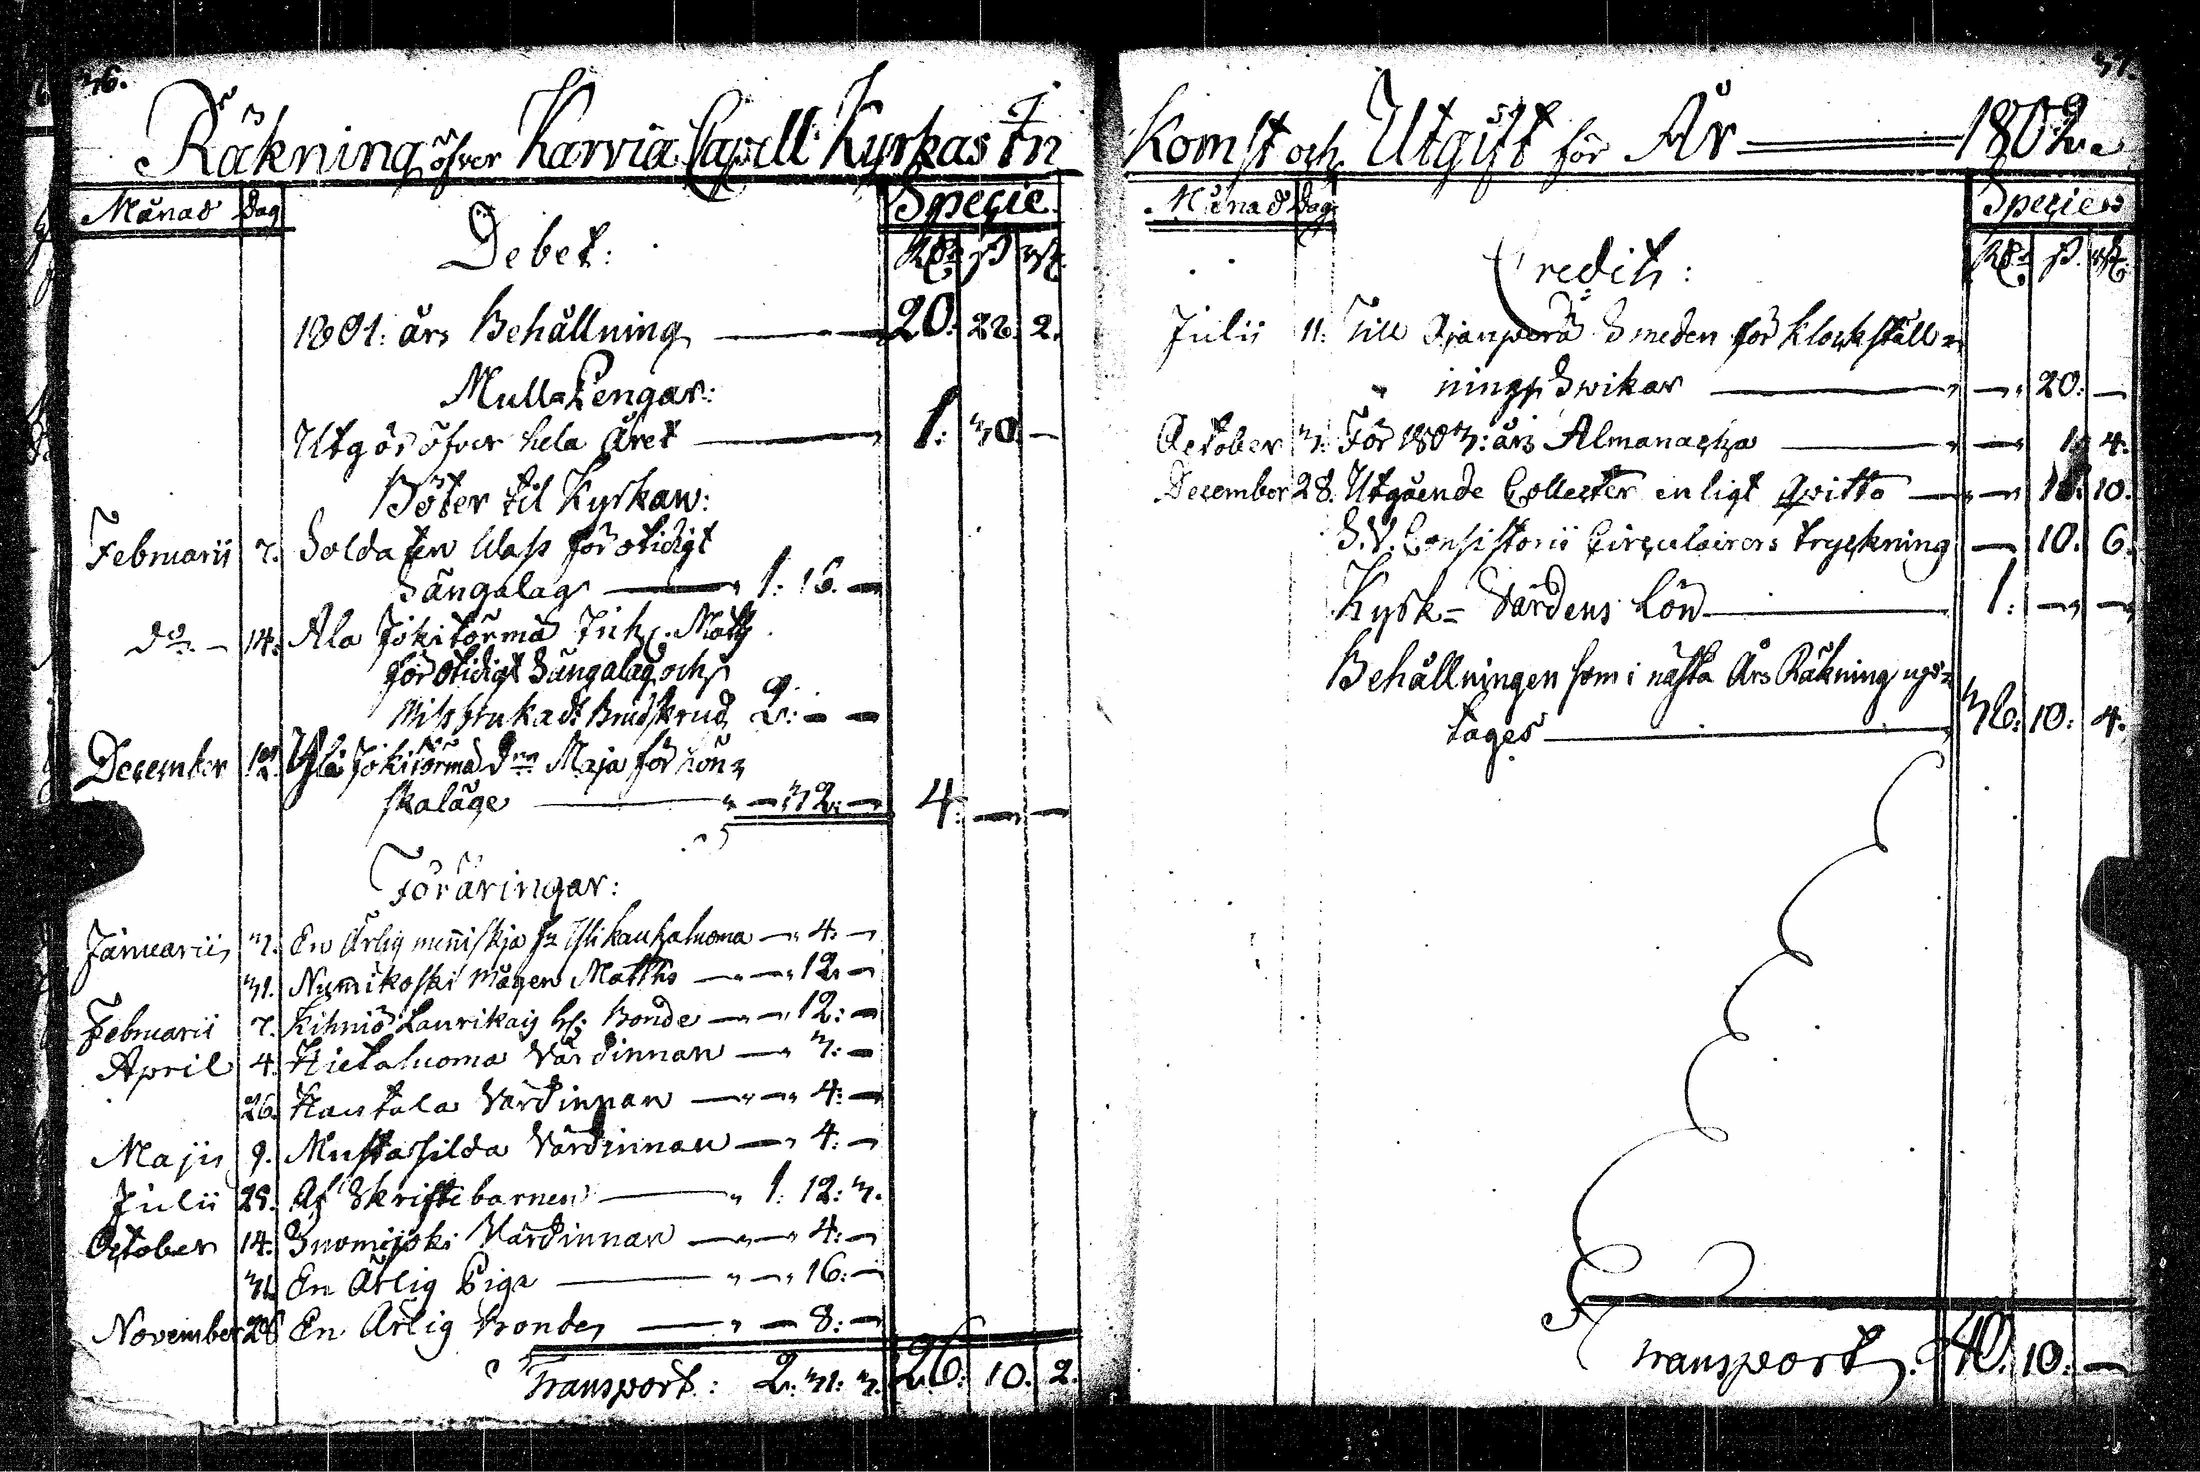 36.
Räkning öfver Karvia Capell Kyrkas In
Månad Dag
Specie
Debet:
Rd. ß rst.
1801: års Behållning 20: 22: 2.
Mull=Pengar:
Utgör öfver hela Året 1: 30. —
Böter til Kyrkan:
Februarii 7. Soldaten Wass för otidigt
Sängalag 1: 16. —
do. 14. Ala Jokitörmä Inh. Matts
för otidigt Sängalag och
Missbrukadt Brudskrud 2: — —
December Ylä Jokitörmä Drn Maja för lön=
skaläge — 32: — 4: — —
Föräringar:
Januarii 3. En Ärlig menniskja fr. Ylikauhaluoma — 4: —
31. Nummikoski Mågen Matths — 12: —
Februarii 7. Kihniö Laurikais Bonde — 12: —
April 4. Hietaluoma Värdinnan — 3: —
26. Hautala Värdinnan — 4: —
Maji 9. Mustasilda Värdinnan — 4: —
Julii 25. Af Skriftebarnen 1: 12: 3.
October 14. Suomijoki Värdinnan — 4: —
31. En Ärlig Piga — 16: —
November 28 En Ärlig Bonde — 8: —
Transport: 2: 31: 3. 26: 10. 2.
37.
Komst och Utgift för År 1802.
Månad Dag
Specie
Credit:
Rd. ß. rst.
Julii 11: Till Ojanperä Smeden för Klockställ=
nings Swikar — 20: —
October 3: För 1803: års Almanacka — 1: 4.
December 28. Utgående Collecter enligt Qvitto — 18. 10.
S.V. Consistorii Circulairers tryckning — 10. 6.
Kyrk= Värdens Lön 1: — —
Behållningen som i nästa Års Räkning up=
tages 36: 10: 4.
Transport. 40. 10: —